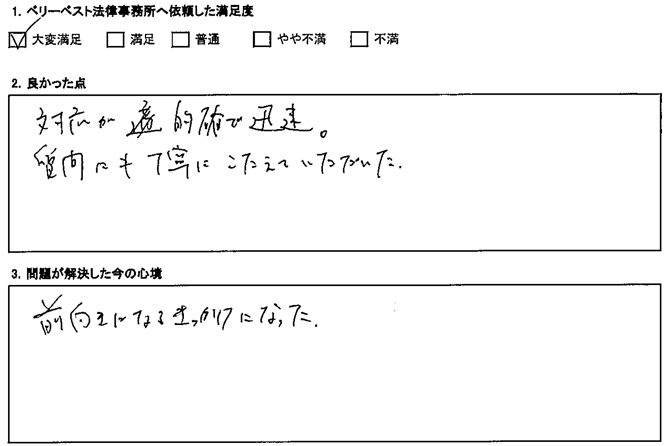 1. ベリーベスト法律事務所へ依頼した満足度
大変満足 満足 普通 やや不満 不満
2. 良かった点
対応が 的確で迅速。
質問にも丁寧にこたえていただいた.
3. 問題が解決した今の心境
前向きになるきっかけになった.